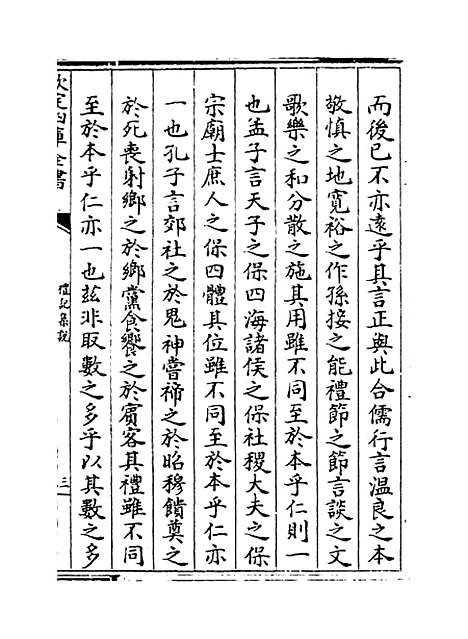 而後已不亦遠乎其言正與此合儒行言温良之本
敬慎之地寛裕之作孫接之能禮節之節言談之文
歌樂之和分散之施其用雖不同至於本乎仁則一
也孟子言天子之保四海諸侯之保社稷大夫之保
宗廟士庶人之保四體其位雖不同至於本乎仁亦
一也孔子言郊社之於鬼神嘗禘之於昭穆饋奠之
於死喪射鄉之於鄉黨食饗之於賓客其禮雖不同
至於本乎仁亦一也兹非取數之多乎以其數之多
欽定四庫全書
禮記集說
三